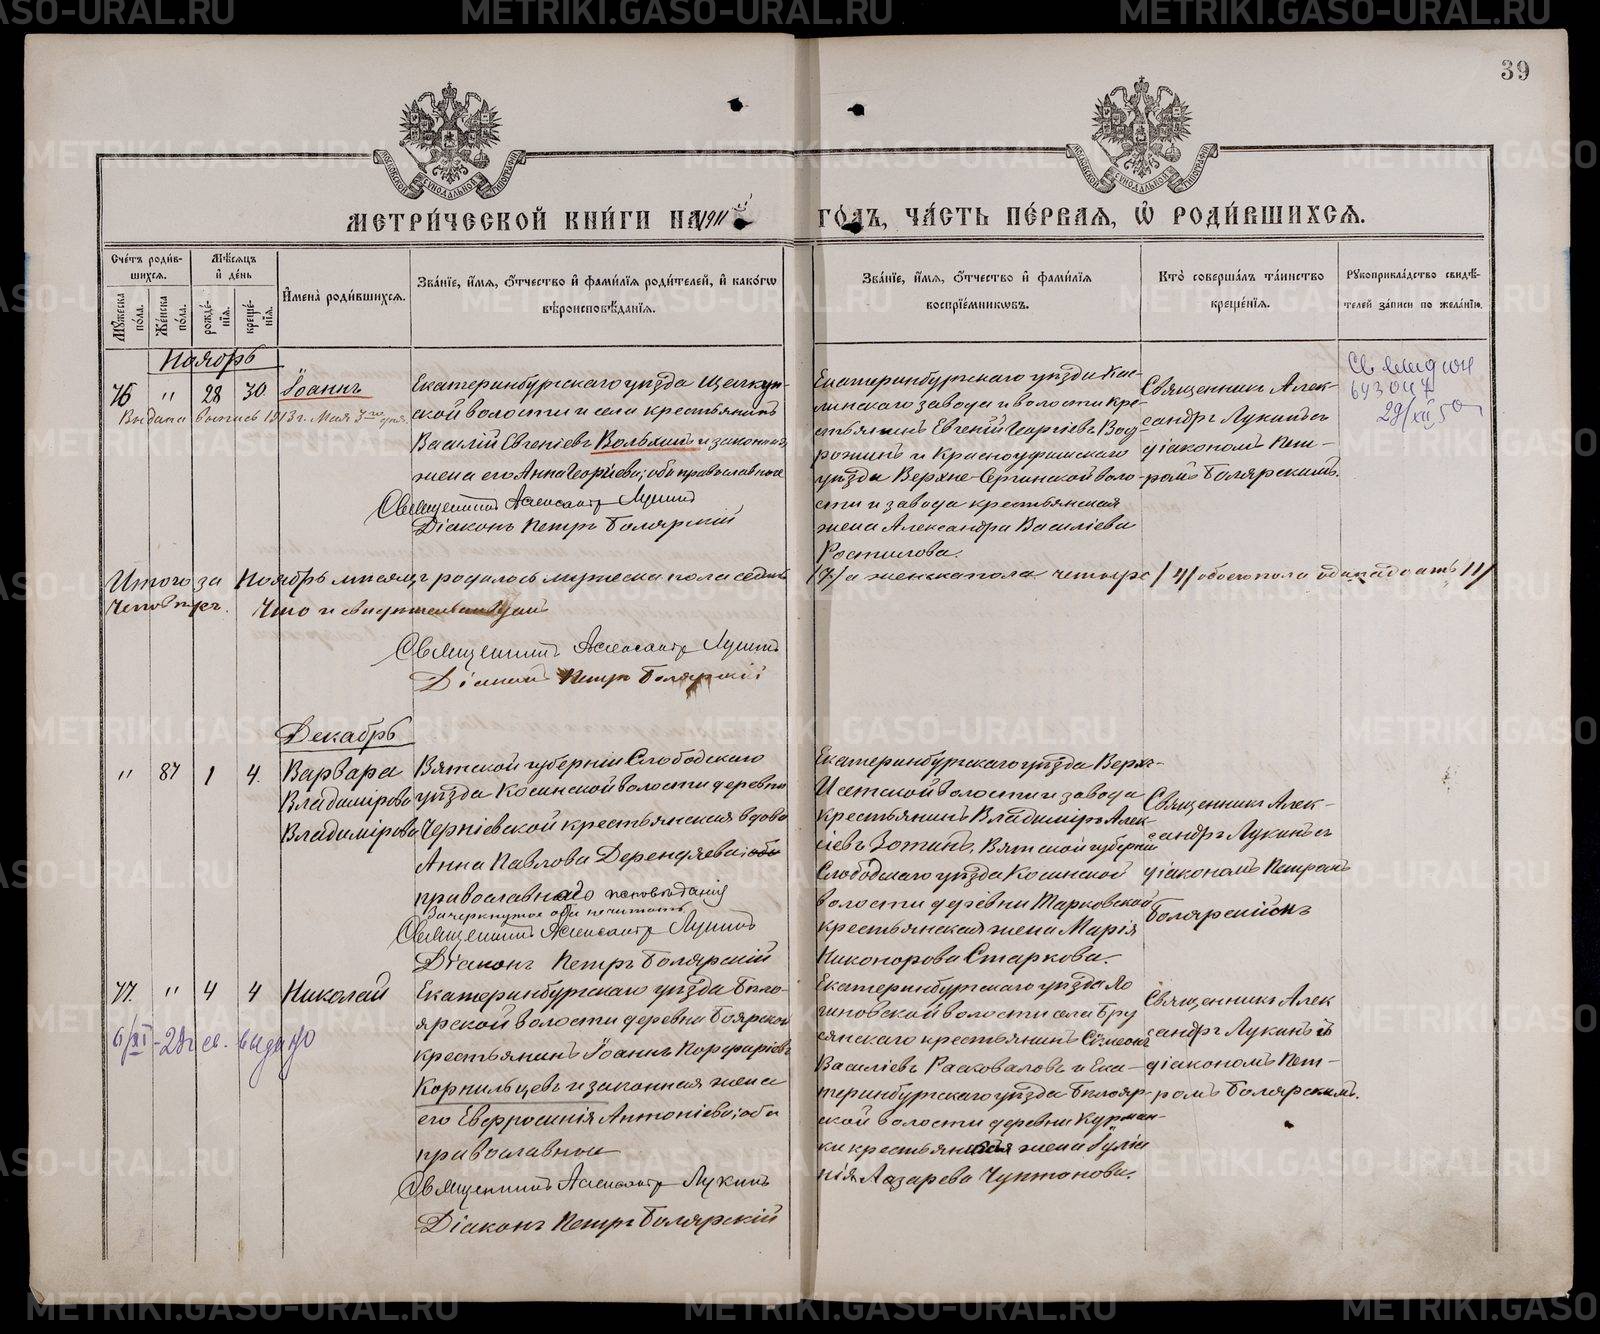 39
МЕТРИ́ЧЕСКОЙ КНИ́ГИ НА 1911 ГО́ДЪ, ЧА́СТЬ ПЕ́РВАЯ, Ѡ҆ РОДИ́ВШИХСЯ.
Сче́тъ роди́вшихся.
Му́жеска по́ла.
Же́нска по́ла.
Мѣ́сяцъ и҆ де́нь
рожде́нїя.
креще́нїя.
И҆мена̀ роди́вшихся.
Зва́нїе, и҆́мя, ѻ҆́тчество и҆ фами́лїя роди́телей, и҆ како́гѡ
вѣроисповѣ́данїя.
Зва́нїе, и҆́мя, ѻ҆́тчество и҆ фами́лїя
воспрїе́мникѡвъ.
Кто̀ соверша́лъ та́инство
креще́нїя.
Рꙋкоприкла́дство свидѣ́-
телей за́писи по жела́нїю.
Ноябрь
76 " 28 30. Іоаннъ
Выдана выпись 1913 г. Мая 3го дня
Екатеринбургскаго уѣзда Щелкун-
ской волости и села крестьянинъ
Василій Евгеніевъ Вольхинъ и законная
жена его Анна Георгіева; оба православные
Священникъ Александръ Лукинъ
Діаконъ Петръ Болярскій
Екатеринбургскаго уѣзда Кас-
линскаго завода и волости кре-
стьянинъ Евгеній Георгіевъ
и Красноуфимскаго
уѣзда Верхне-Сергинской воло-
сти и завода крестьянская
жена Александра Василіева
Священникъ Алек-
сандръ Лукинъ съ
діакономъ Пет-
ромъ Болярскимъ.
29/XII
Итого за Ноябрь мѣсяцъ родилось мужеска пола седмь /7/ а женска пола четыре /4/ обоего пола одинадцать 11/
Что и свидѣтельствуемъ
Священникъ Александръ Лукинъ
Діаконъ Петръ Болярскій
Декабрь
" 87 1 4. Варвара
Владимірова
Владимірова
Вятской губерніи Слободскаго
уѣзда Косинской волости деревни
крестьянская вдова
Анна Павлова Дерендяева; оба
православнаго исповѣданія
Зачеркнутое оба не читать
Священникъ Александръ Лукинъ
Діаконъ Петръ Болярскій
Екатеринбургскаго уѣзда Верх-
Исетской волости и завода
крестьянинъ Владиміръ Алек-
сіевъ Зотинъ, Вятской губерніи
Слободскаго уѣзда Косинской
волости деревни Тарковской
крестьянская жена Марія
Никонорова Старкова.
Священникъ Алек-
сандръ Лукинъ съ
діакономъ Петромъ
Болярскимъ
77. " 4 4 Николай
6/XI- выдано
Екатеринбургскаго уѣзда Бѣло-
ярской волости деревни Боярской
крестьянинъ Іоаннъ Порфиріевъ
Корнильцевъ и законная жена
его Евфросинія Антоніева; оба
православные
Священникъ Александръ Лукинъ
Діаконъ Петръ Болярскій
Екатеринбургскаго уѣзда Ло
гиновской волости села Бру
сянскаго крестьянинъ Сѵмеонъ
Василіевъ и Ека-
теринбургскаго уѣзда Бѣлояр-
ской волости деревни Курман-
ки крестьянская жена Іуліа
нія Лазарева
Священникъ Алек
сандръ Лукинъ съ
діакономъ Пет-
ромъ Болярскимъ.